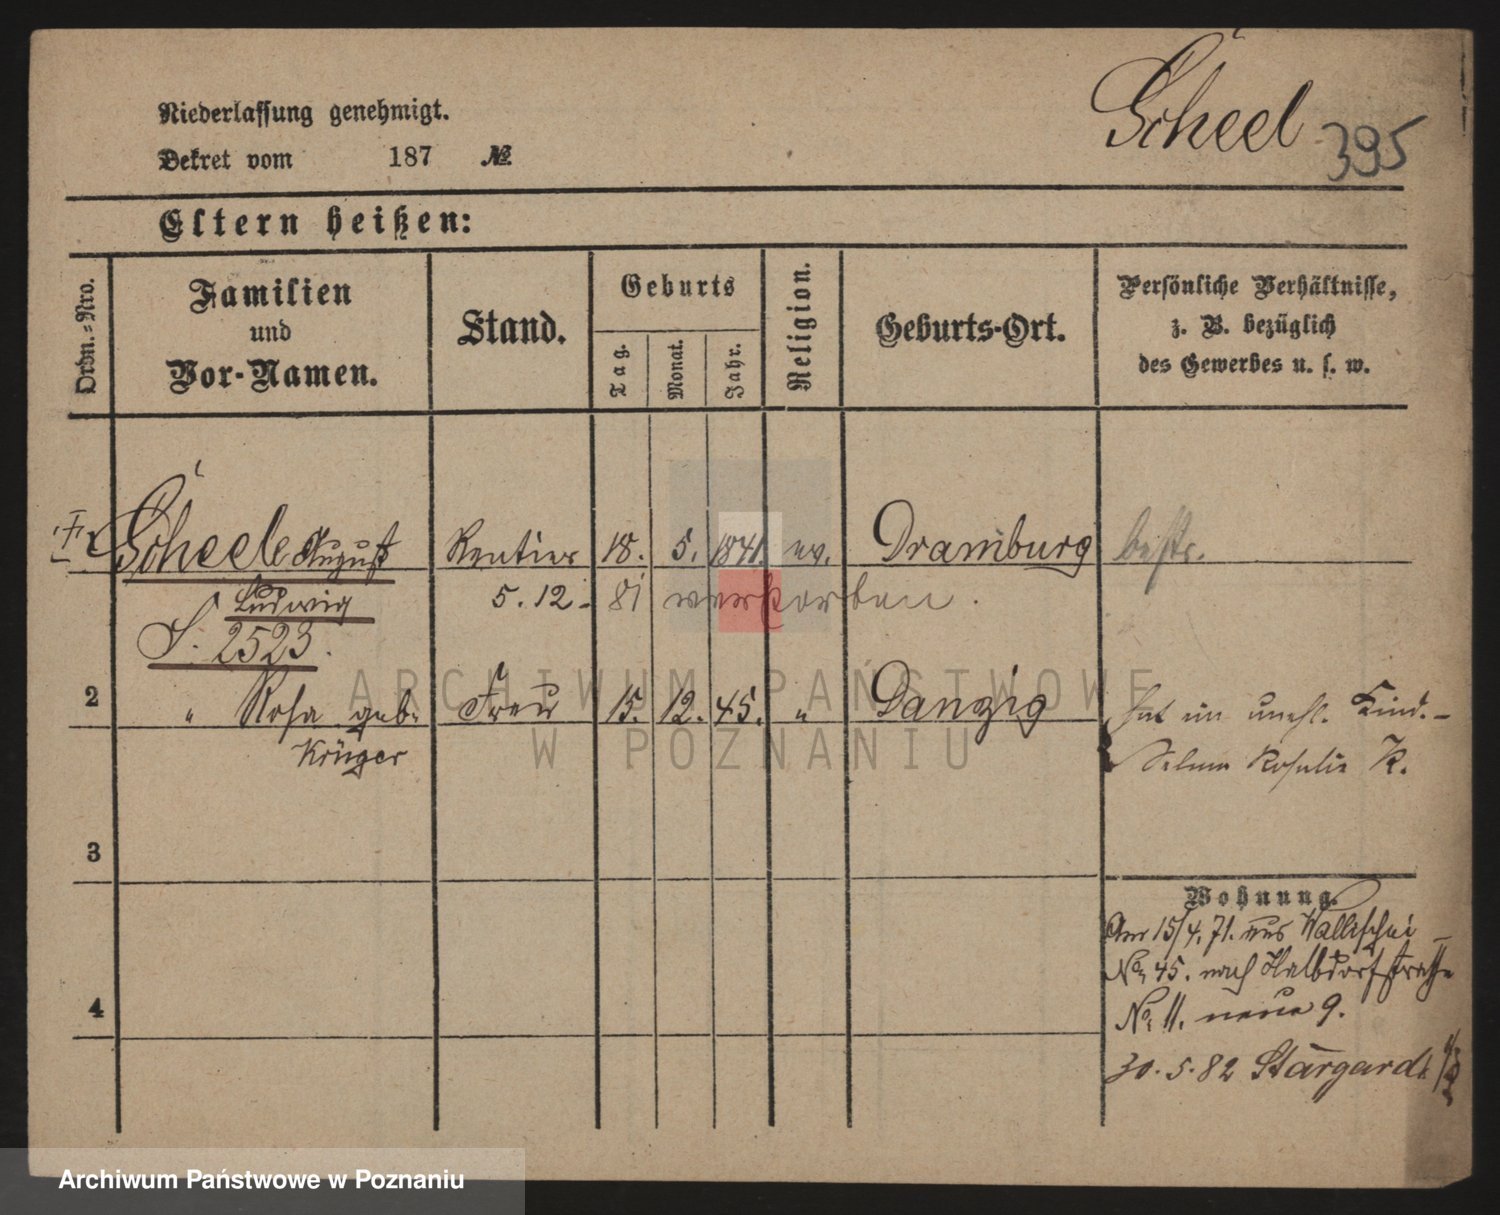 Scheel 395
Niederlassung genehmigt.
Dekret vom 187 №
Eltern heißen:
Ordn.-Nro.
Familien und Vor-Namen.
Stand.
Geburts
Tag.
Monat.
Jahr.
Religion.
Geburts-Ort.
Persönliche Verhältnisse,
z. B. bezüglich
des Gewerbes u. s. w.
Scheel August Rentier 18. 5. 1841. ev. Dramburg bestr.
Ludwig 5. 12. 81 verstorben.
S. 2523.
2 " Rosa geb. Frau 15. 12. 45. " Danzig hat ein unehl. Kind.
Krüger Selma Rosalie K.
3
Wohnung.
Am 15/4. 71. aus Wallischei
No. 45. nach Halbdorfstraße
4 No. 11. neue 9.
30. 5. 82 Stargardt
ARCHIWUM PAŃSTWOWE
W POZNANIU
Archiwum Państwowe w Poznaniu